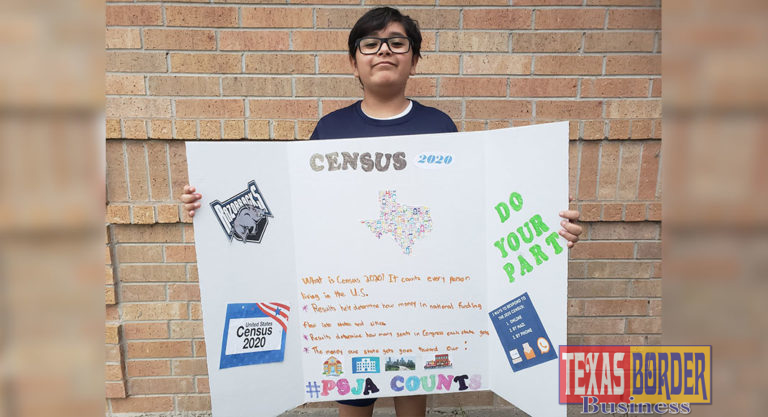 CENSUS 2020
RAZORBACKS
DO
YOUR
PART
What is Census 2020? It counts every person
living in the U.S.
* Results help determine how money in national funding
flow into states and cities.
* Results determine how many seats in Congress each state gets
* The money our state gets goes toward our :
United States
Census
2020
3 WAYS TO RESPOND TO
THE 2020 CENSUS:
1. ONLINE
2. BY MAIL
3. BY PHONE
#PSJA COUNTS
TEXAS BORDER
Business